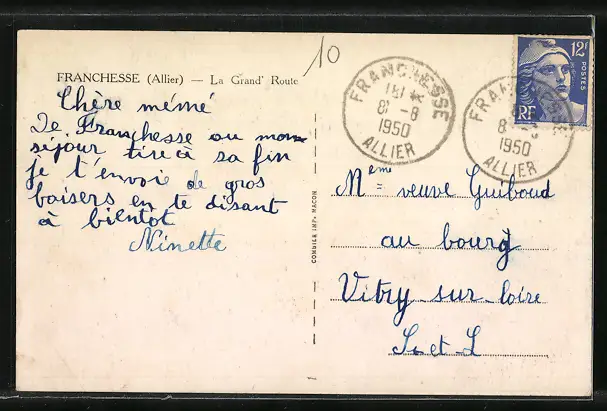 10
FRANCHESSE (Allier) — La Grand' Route
Chère mémé
De Franchesse ou mon
séjour tire à sa fin
je t'envoie de gros
baisers en te disant
à bientot
Ninette
COMBIER IMP. MACON
FRANCHESSE
18H *
8-8
1950
ALLIER
FRANCHESSE
8
1950
ALLIER
12F
POSTES
RF
Mème veuve Guiboud
au bourg
Vitry-sur-loire
S-et-L